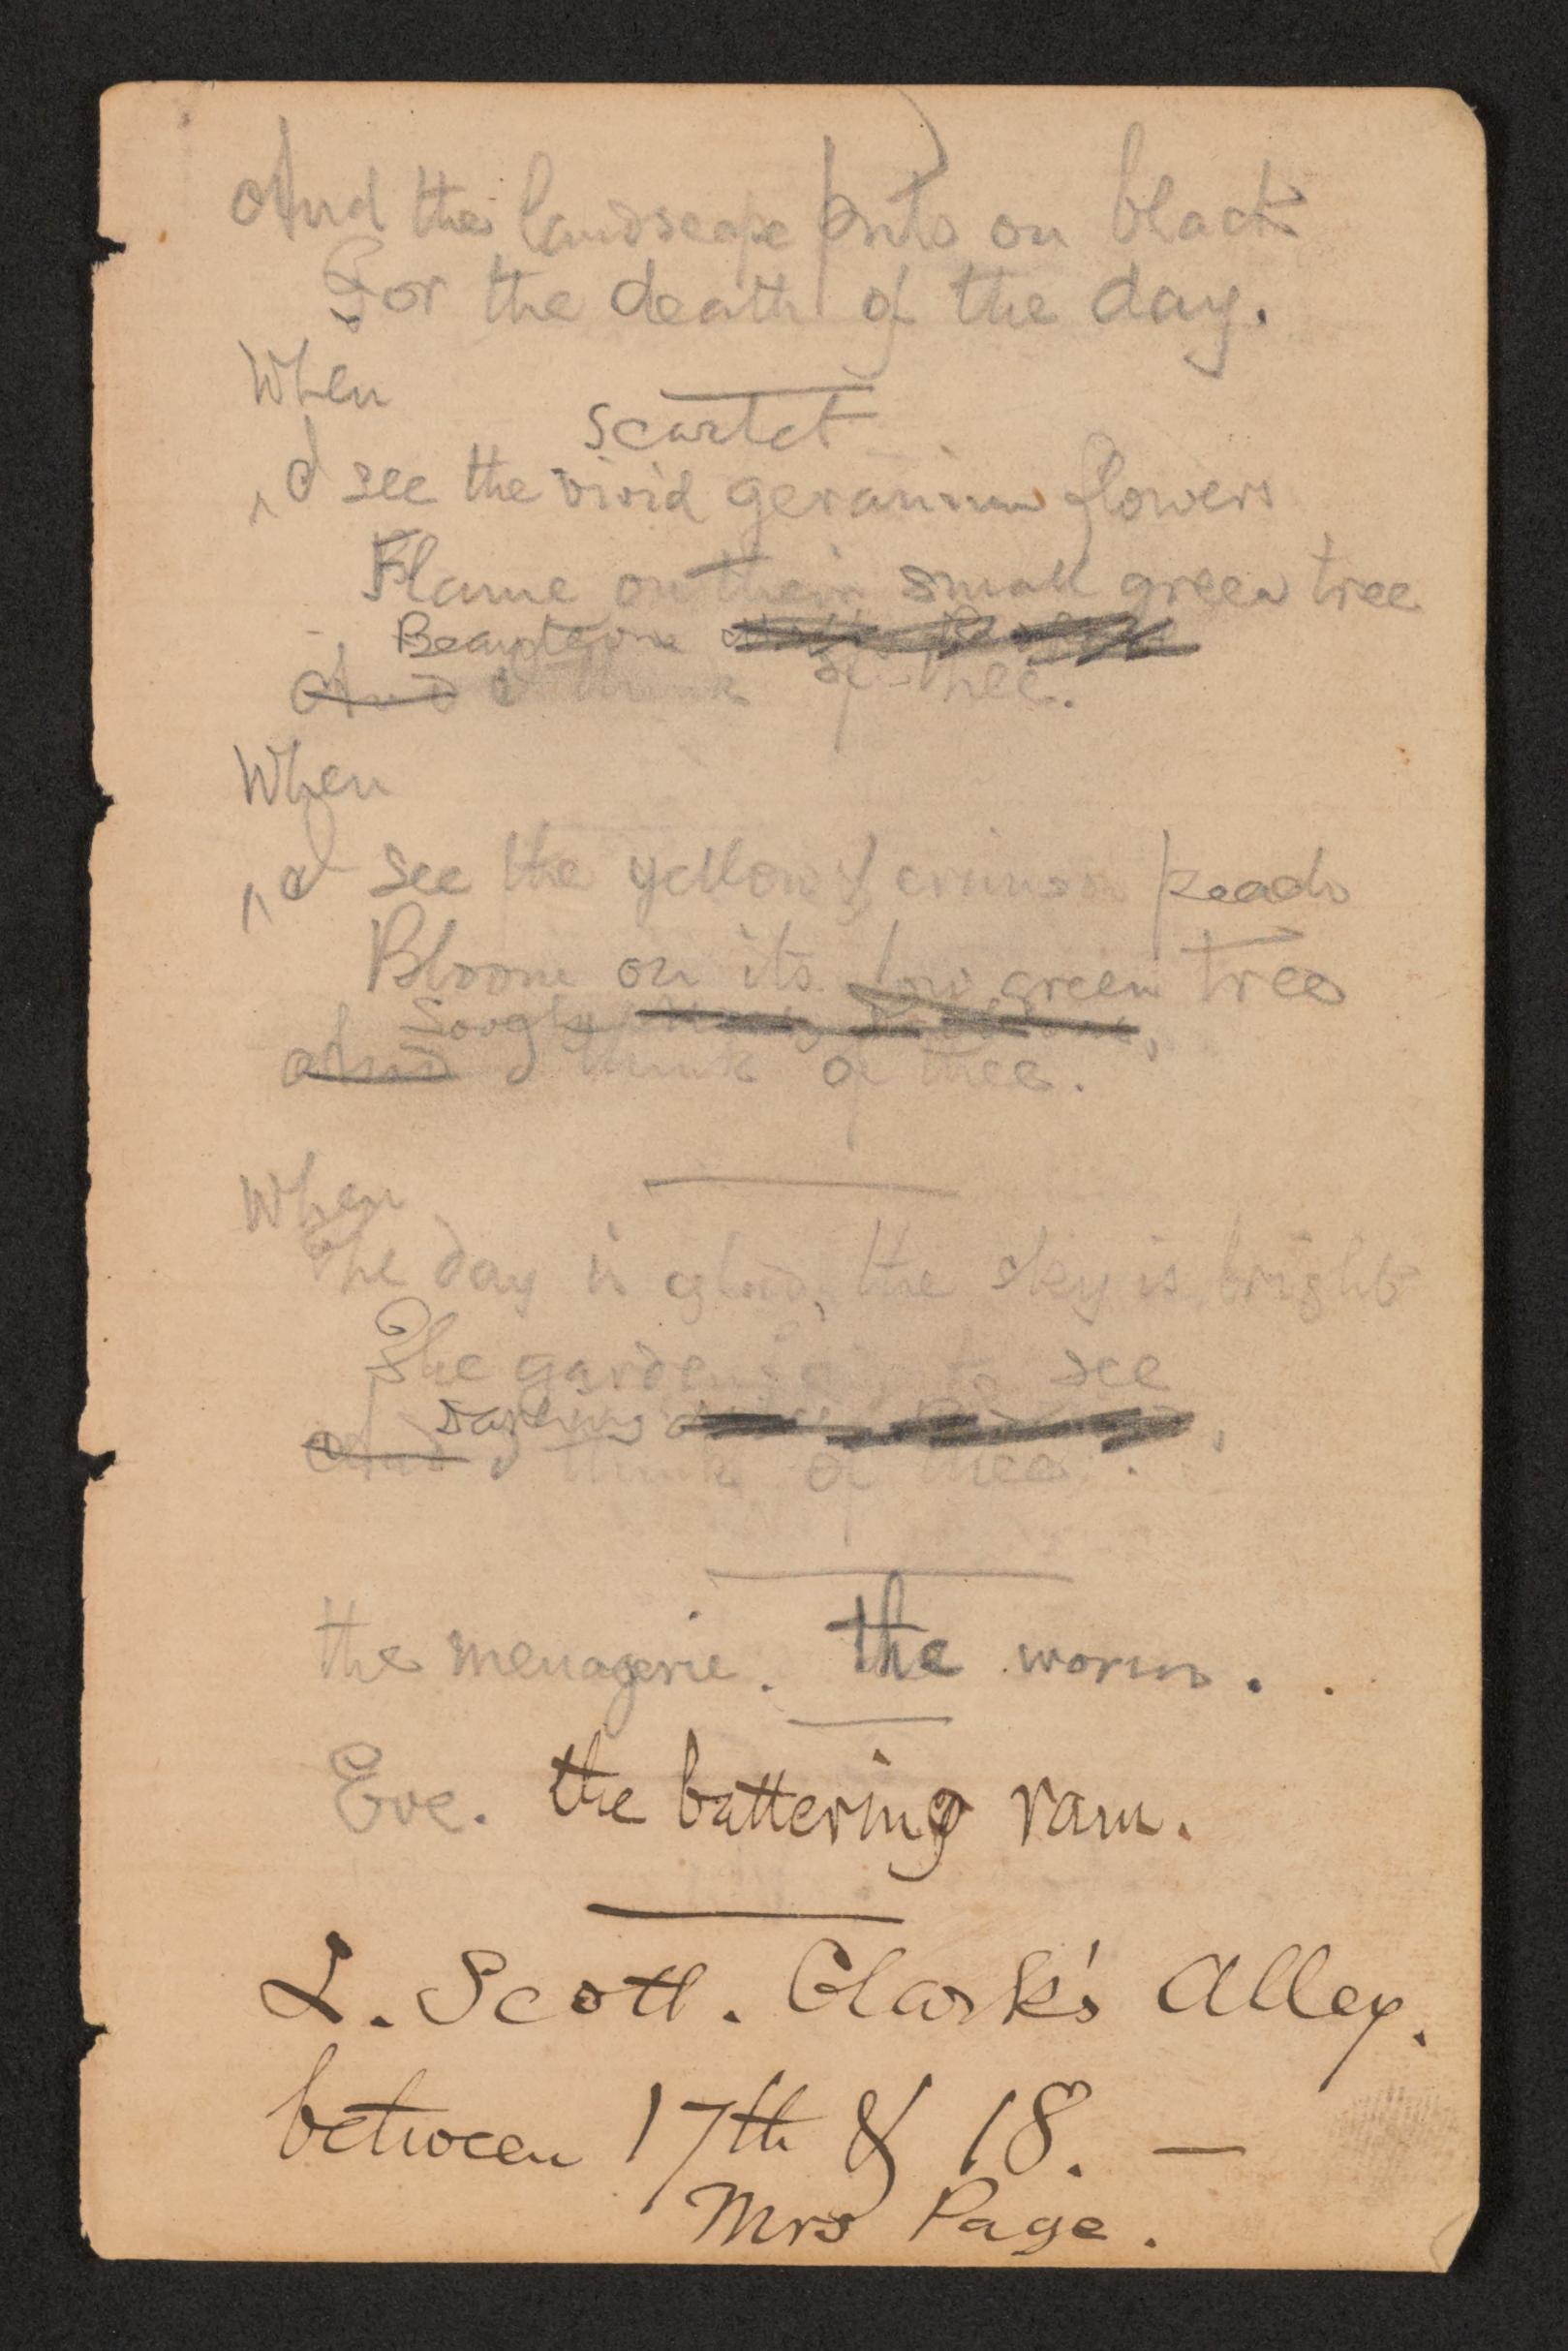 And the landscape puts on black
For the death of the day.
When
scarlet
^ I see the vivid geranium flowers
Flame on their small green tree
Beauteous
And I think of thee.
When
^ I see the yellow & crimson heads
Bloom on its low green tree
And I think of thee.
When
The day is glad, the sky is bright
The garden to see
Darling
And I think of thee.
the menagerie. the worm. .
Eve. the battering ram.
L. Scott. Clark's Alley.
between 17th & 18. —
Mrs Page.